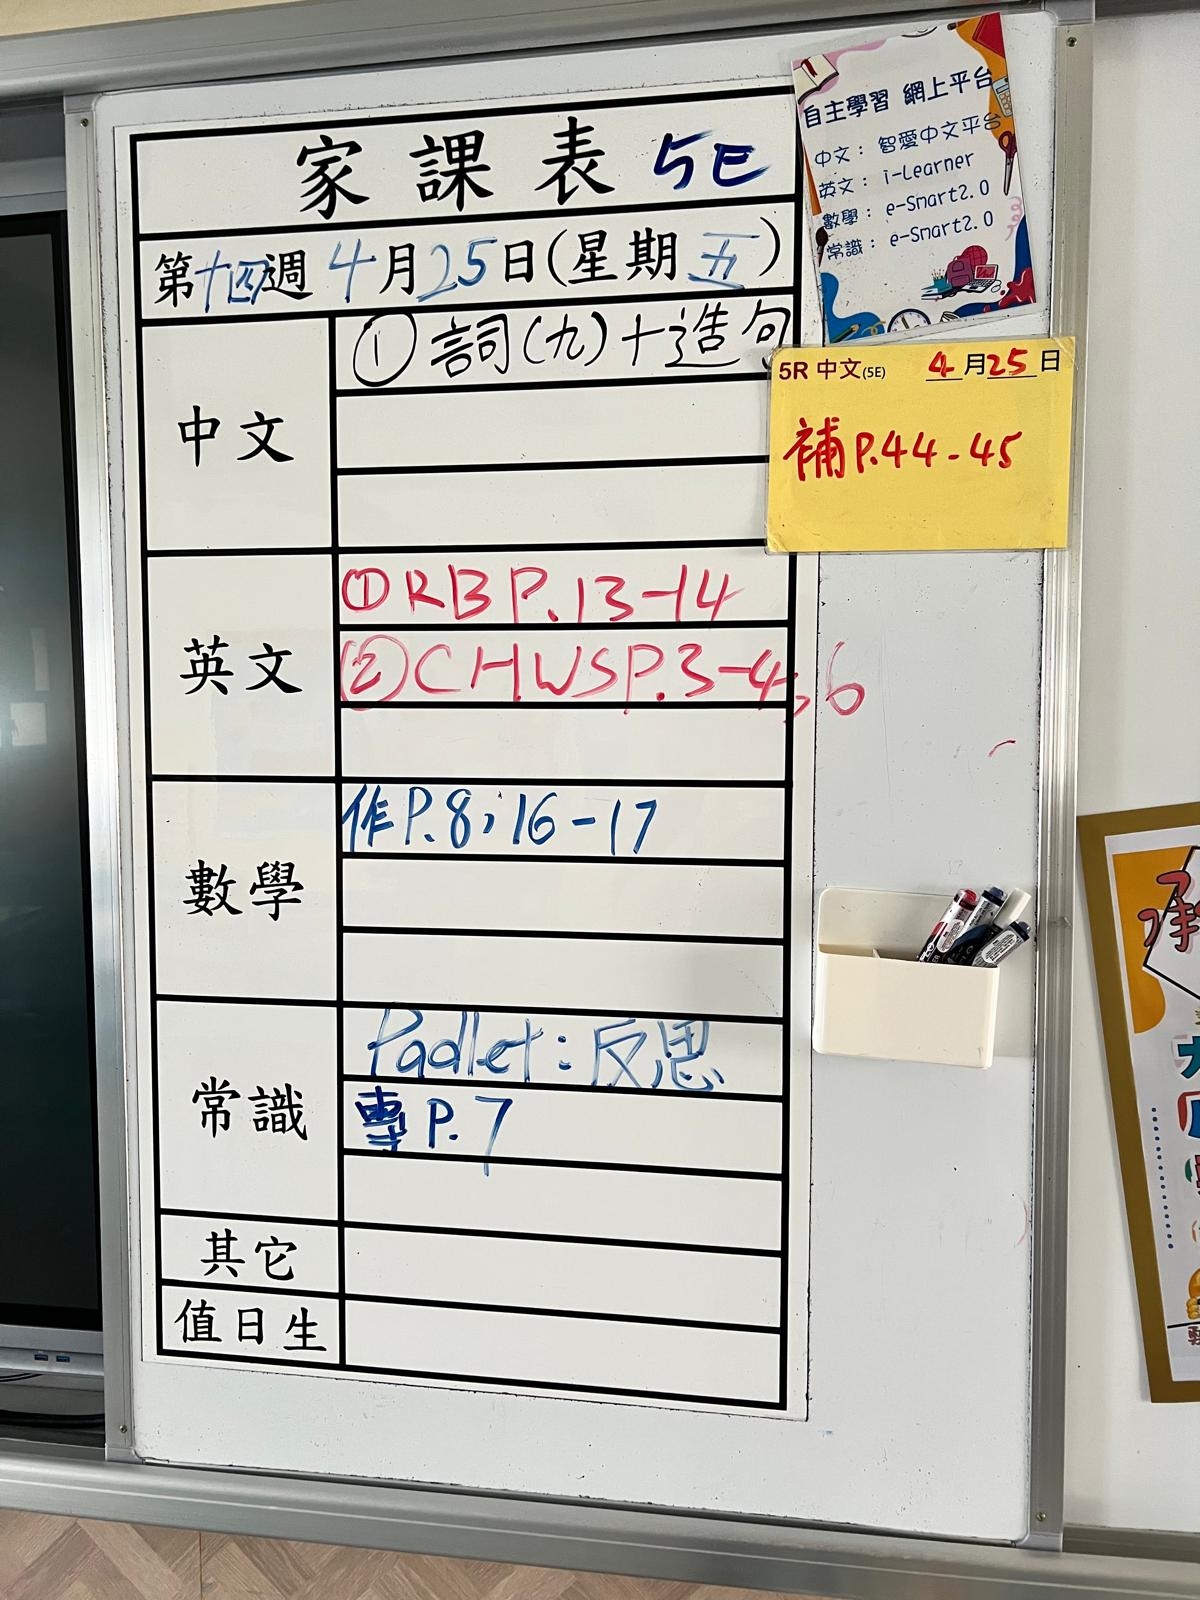 家課表 5E
第十四週 4月25日(星期五)
中文
① 詞(九)+造句
英文
①RB P.13-14
②CHWS P.3-4;6
數學
作P.8;16-17
常識
Padlet:反思
專P.7
其它
值日生
自主學習 網上平台
中文:智愛中文平台
英文:i-Learner
數學:e-Smart2.0
常識:e-Smart2.0
5R 中文(5E) 4月25日
補P.44-45